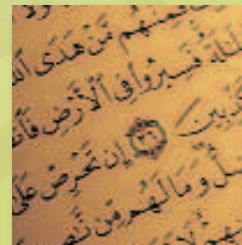 فَمِنْهُم مَّنْ هَدَى ٱللَّ
لَٰلَةُ فَسِيرُوا۟ فِى ٱلْأَرْضِ فَٱن
ذِّبِينَ ٣٦ إِن تَحْرِصْ عَلَىٰ
ضِلُّ وَمَا لَهُم مِّن نَّٰصِ